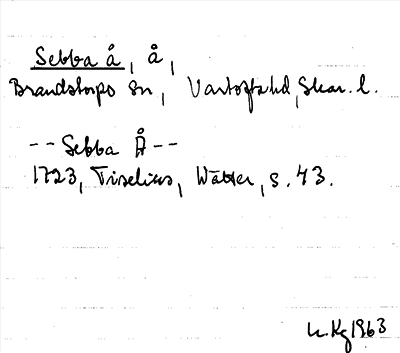 Sebba å, å,
Brandstorps sn, Vartofta hd, Skar. l.
--Sebba Å--
1723, Tiselius, Wätter, s. 43.
L. Kg 1963